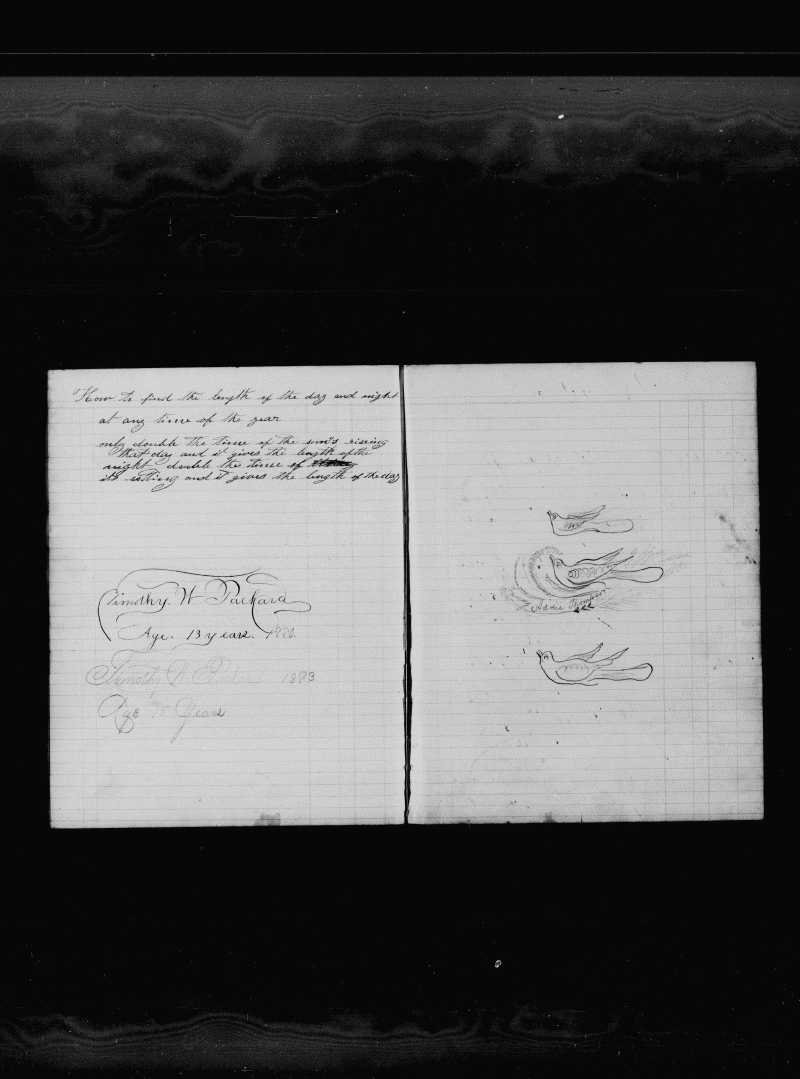 How to find the length of the day and night
at any time of the year
only double the time of the sun's rising
that day and it gives the length of the
night double the time of
its setting and it gives the length of the day
Timothy. W Packard
Age. 13 years. 1880.
Timothy W Packard 1893
Age Years
Addie